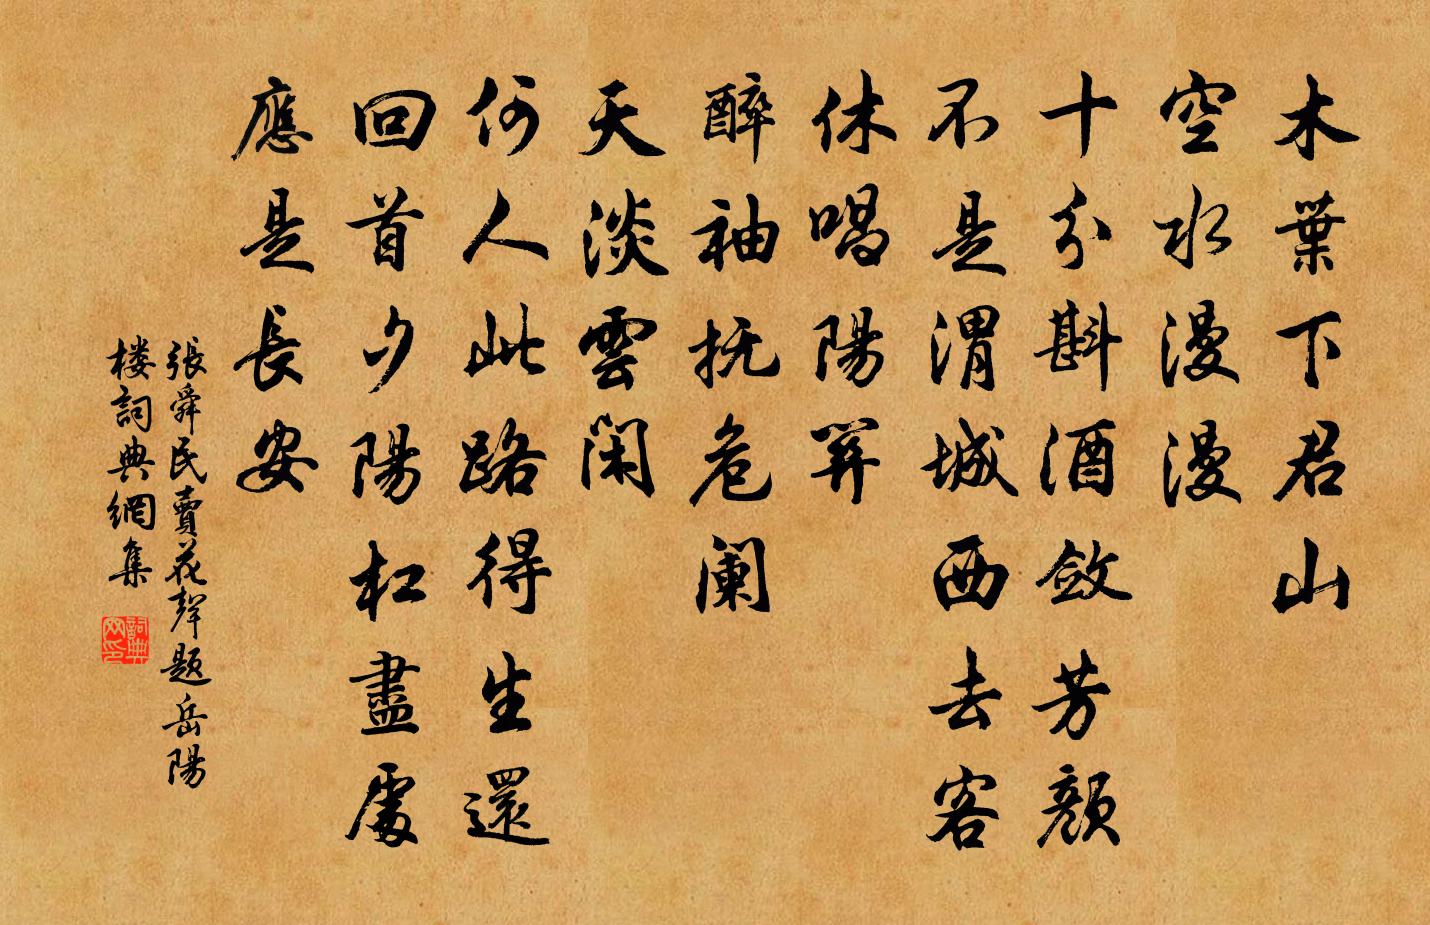 木葉下君山
空水漫漫
十分斟酒斂芳顏
不是渭城西去客
休唱陽關
醉袖抚危闌
天淡雲閑
何人此路得生還
回首夕陽紅盡處
應是長安
張舜民賣花聲題岳陽
楼詞典網集
詞典
网印